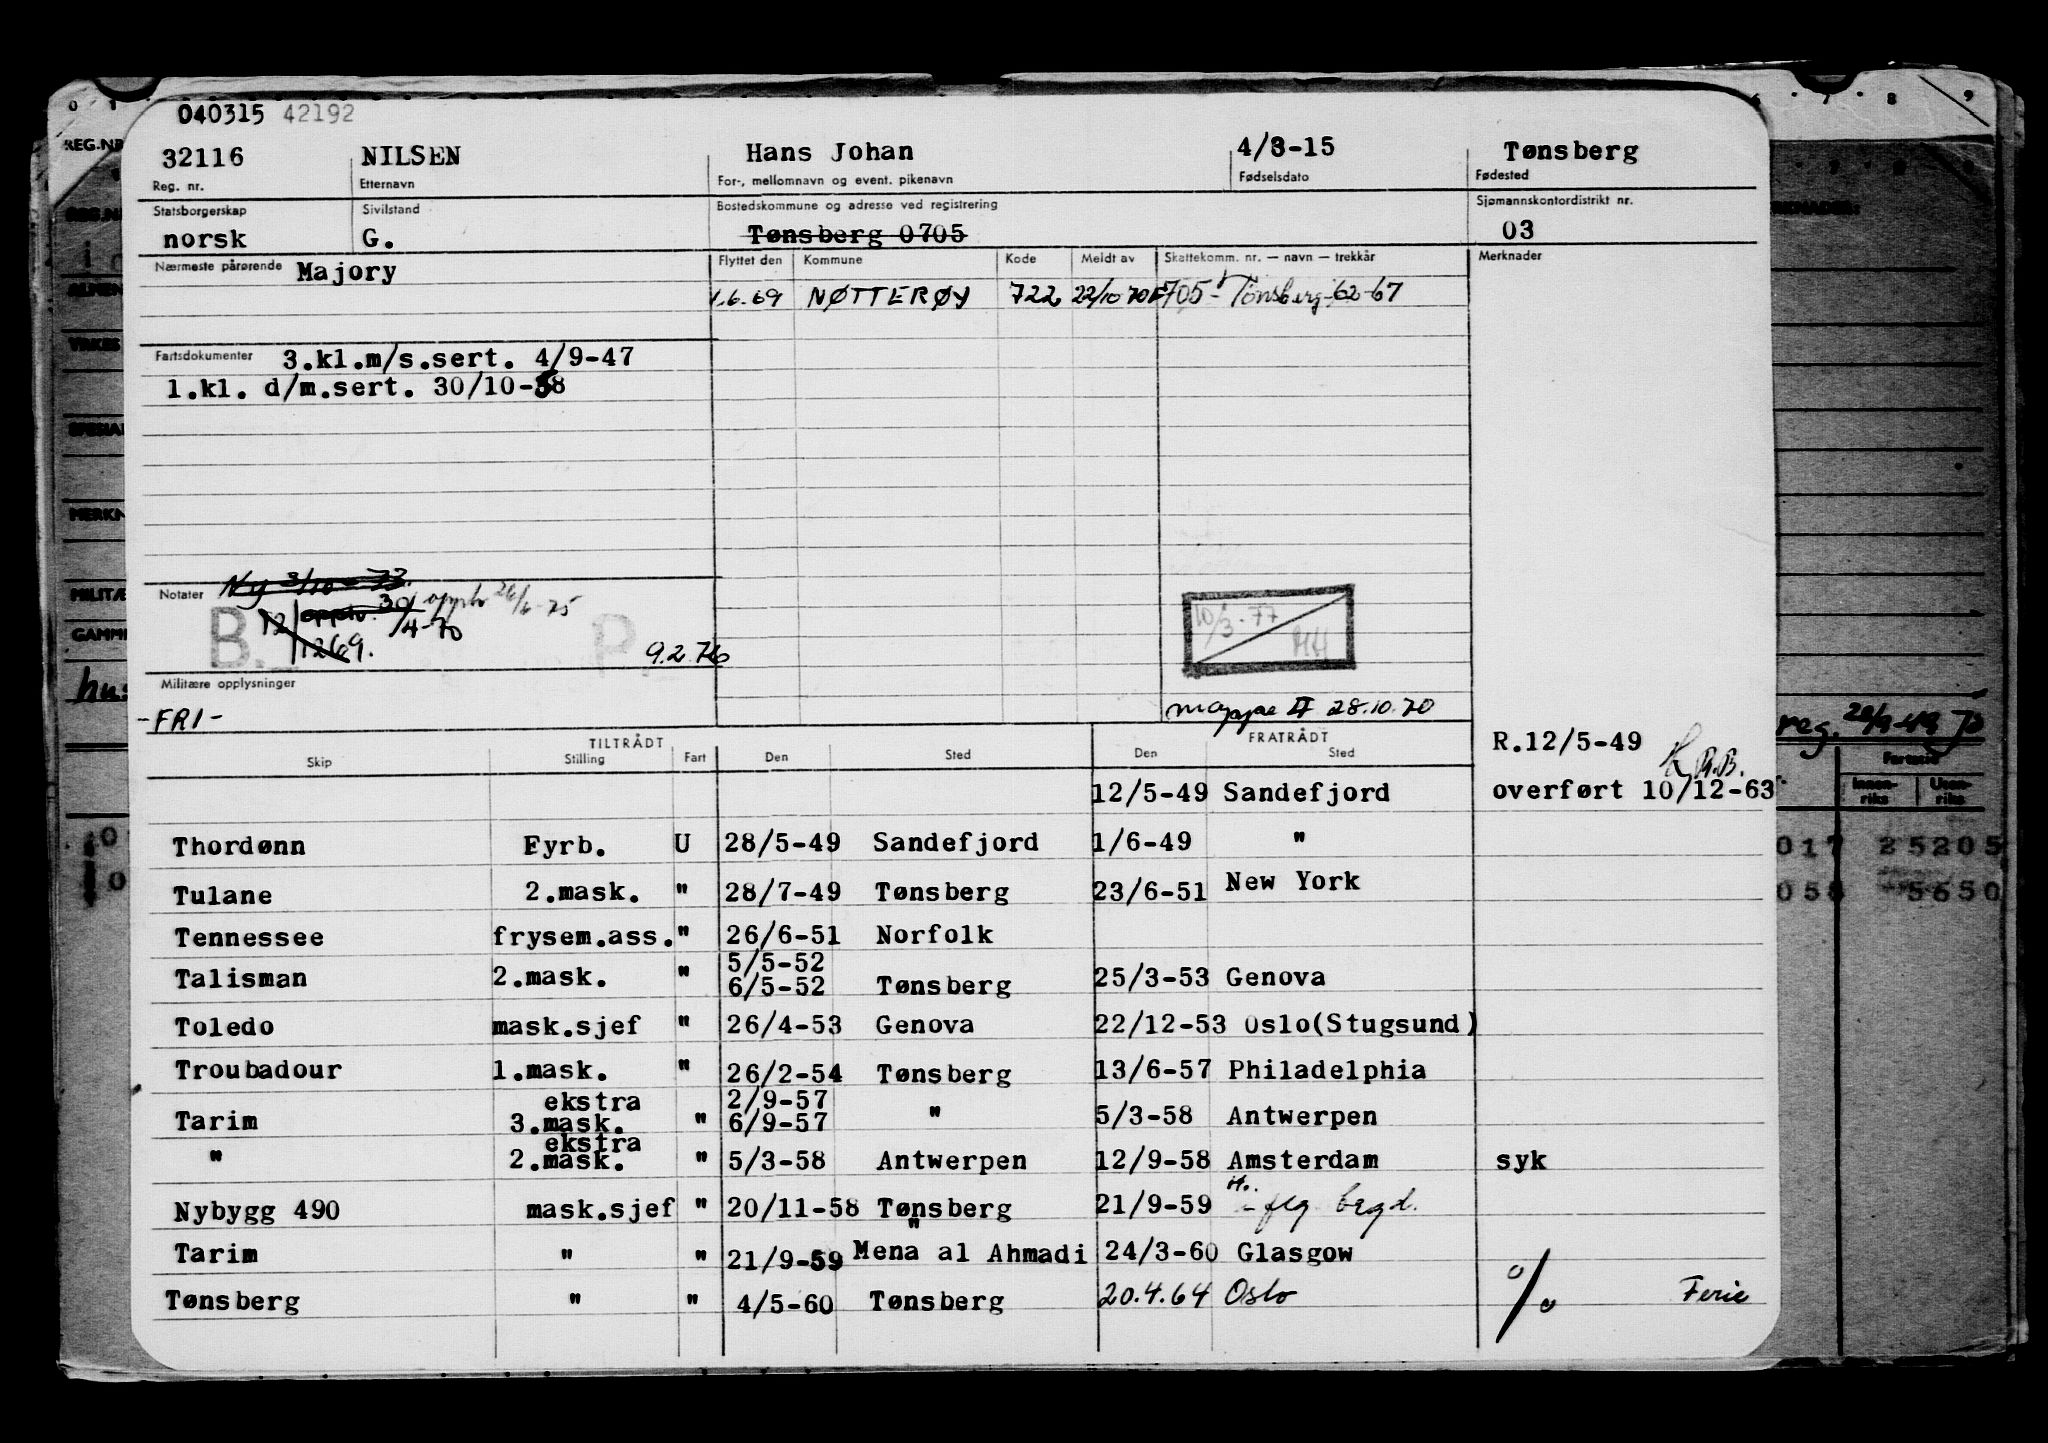 040315 42192
32116 NILSEN Hans Johan 4/3-15 Tønsberg
Reg. nr. Etternavn For-, mellomnavn og event. pikenavn Fødselsdato Fødested
Statsborgerskap Sivilstand Bostedskommune og adresse ved registrering Sjømannskontordistrikt nr.
norsk G. Tønsberg 0705 03
Nærmeste pårørende Majory Flyttet den Kommune Kode Meldt av Skattekomm. nr. — navn — trekkår Merknader
1.6.69 NØTTERØY 722 22/10 70 705 - Tönsberg-62-67
Fartsdokumenter 3.kl.m/s.sert. 4/9-47
1.kl. d/m.sert. 30/10-58
Notater Ny 3/10-73.
B. 12/1269. opphr. 30/4-70 opphr 26/6-75
P. 9.2.76
10/3-77 HH
Militære opplysninger
-FRI-
mappe II 28.10.70
TILTRÅDT FRATRÅDT
Skip Stilling Fart Den Sted Den Sted
R.12/5-49
12/5-49 Sandefjord overført 10/12-63
Thordønn Fyrb. U 28/5-49 Sandefjord 1/6-49 "
Tulane 2.mask. " 28/7-49 Tønsberg 23/6-51 New York
Tennessee frysem.ass. " 26/6-51 Norfolk
5/5-52
Talisman 2.mask. " 6/5-52 Tønsberg 25/3-53 Genova
Toledo mask.sjef " 26/4-53 Genova 22/12-53 Oslo(Stugsund)
Troubadour 1.mask. " 26/2-54 Tønsberg 13/6-57 Philadelphia
ekstra 2/9-57
Tarim 3.mask. " 6/9-57 " 5/3-58 Antwerpen
ekstra
" 2.mask. " 5/3-58 Antwerpen 12/9-58 Amsterdam syk
Nybygg 490 mask.sjef " 20/11-58 Tønsberg 21/9-59 - flg begd.
"
Tarim " " 21/9-59 Mena al Ahmadi 24/3-60 Glasgow
Tønsberg " " 4/5-60 Tønsberg 20.4.64 Oslo % Ferie
REG.NR
reg. 28/9-49
Fartstid
Innen-riks Uten-riks
017 25205
058 5650